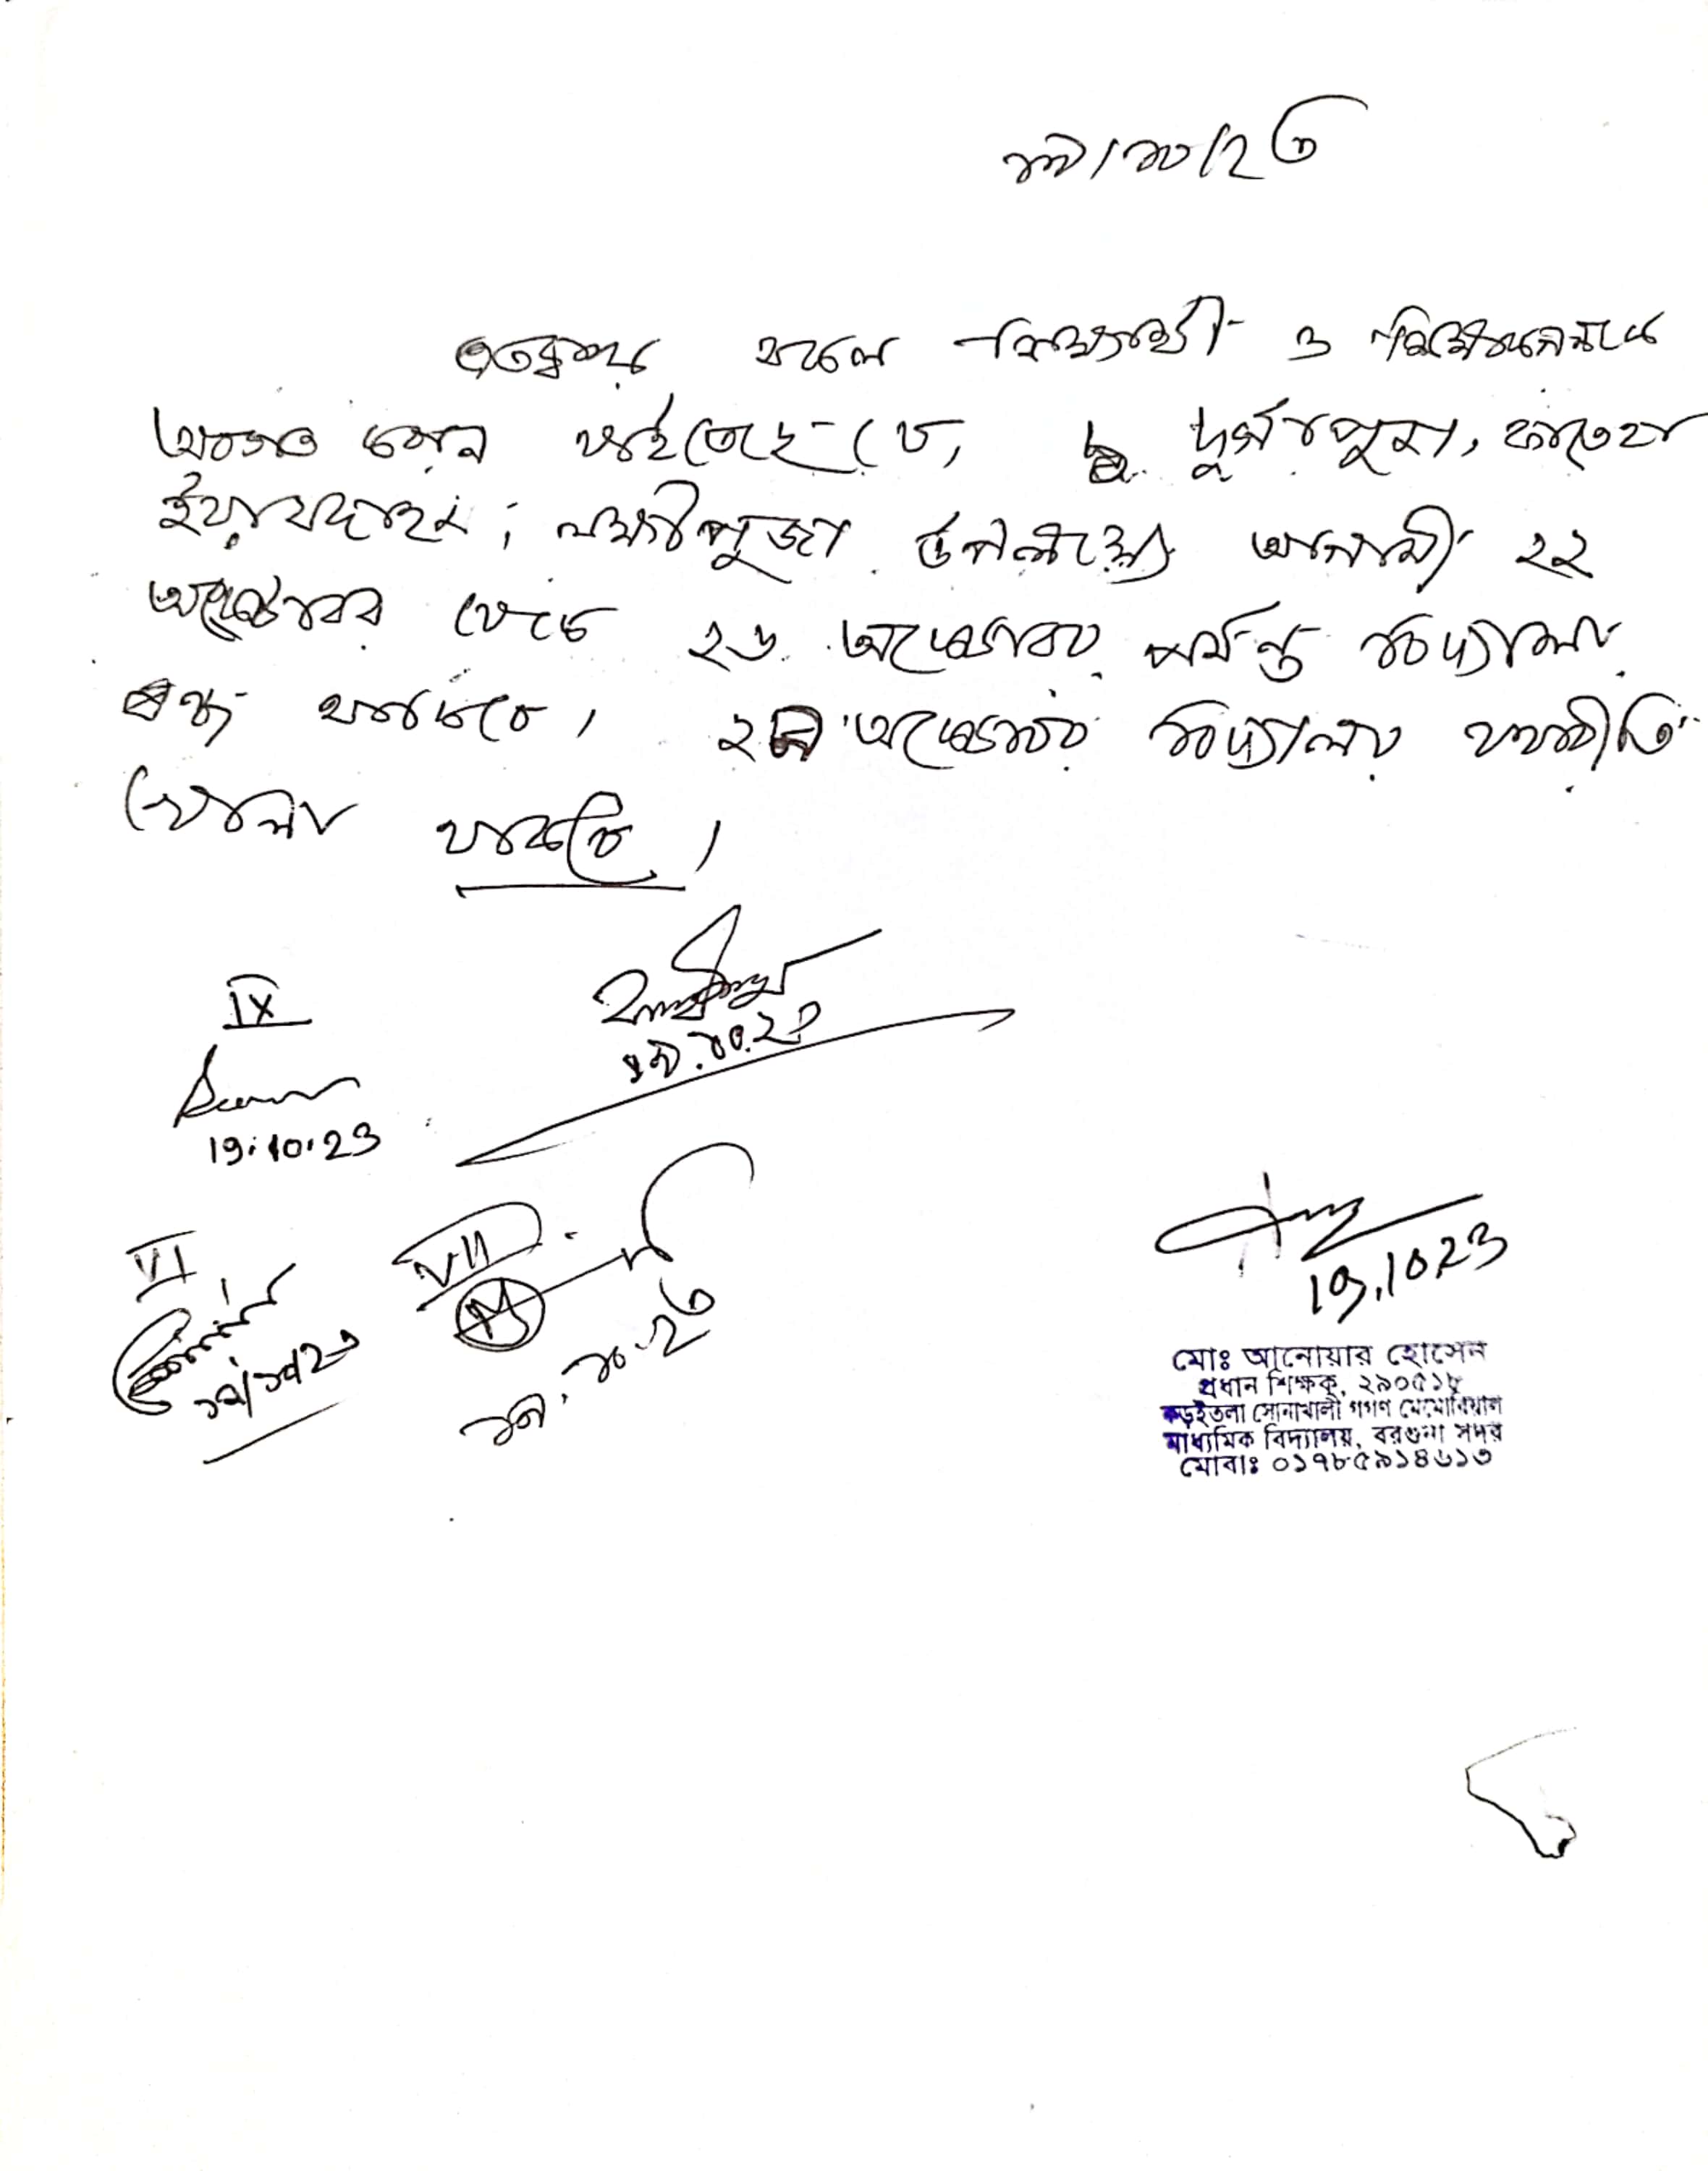 ১৯/১০/২৩
এতদ্বারা সকল শিক্ষার্থী ও শিক্ষকগনকে
অবগত করান যাইতেছে যে, দুর্গাপূজা, ফাতেহা
ইয়াযদাহম, লক্ষীপূজা উপলক্ষ্যে আগামী ২২
অক্টোবর থেকে ২৬ অক্টোবর পর্যন্ত বিদ্যালয়
বন্ধ থাকবে। ২৯ অক্টোবর বিদ্যালয় যথারীতি
খোলা থাকবে।
IX
১৯.১০.২৩
19.10.23
VI
VII
১৯/১০/২৩
১৯.১০.২৩
19.10.23
মোঃ আনোয়ার হোসেন
প্রধান শিক্ষক, ২৯০৫১৮
কড়ইতলা সোনাখালী গগণ মেমোরিয়াল
মাধ্যমিক বিদ্যালয়, বরগুনা সদর
মোবাঃ ০১৭৮৫৯১৪৬১৩